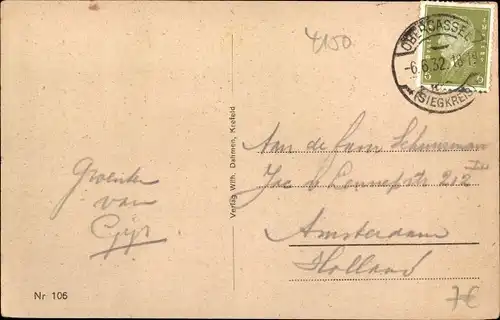 4150
OBERCASSEL
-6.6.32.18-19
(SIEGKREIS)
Groenten
van
Verlag Wilh. Dahmen, Krefeld
Aan de fam Schuurman
Jac v Lennepstr 212
Amsterdam
Holland
Nr 106
7€